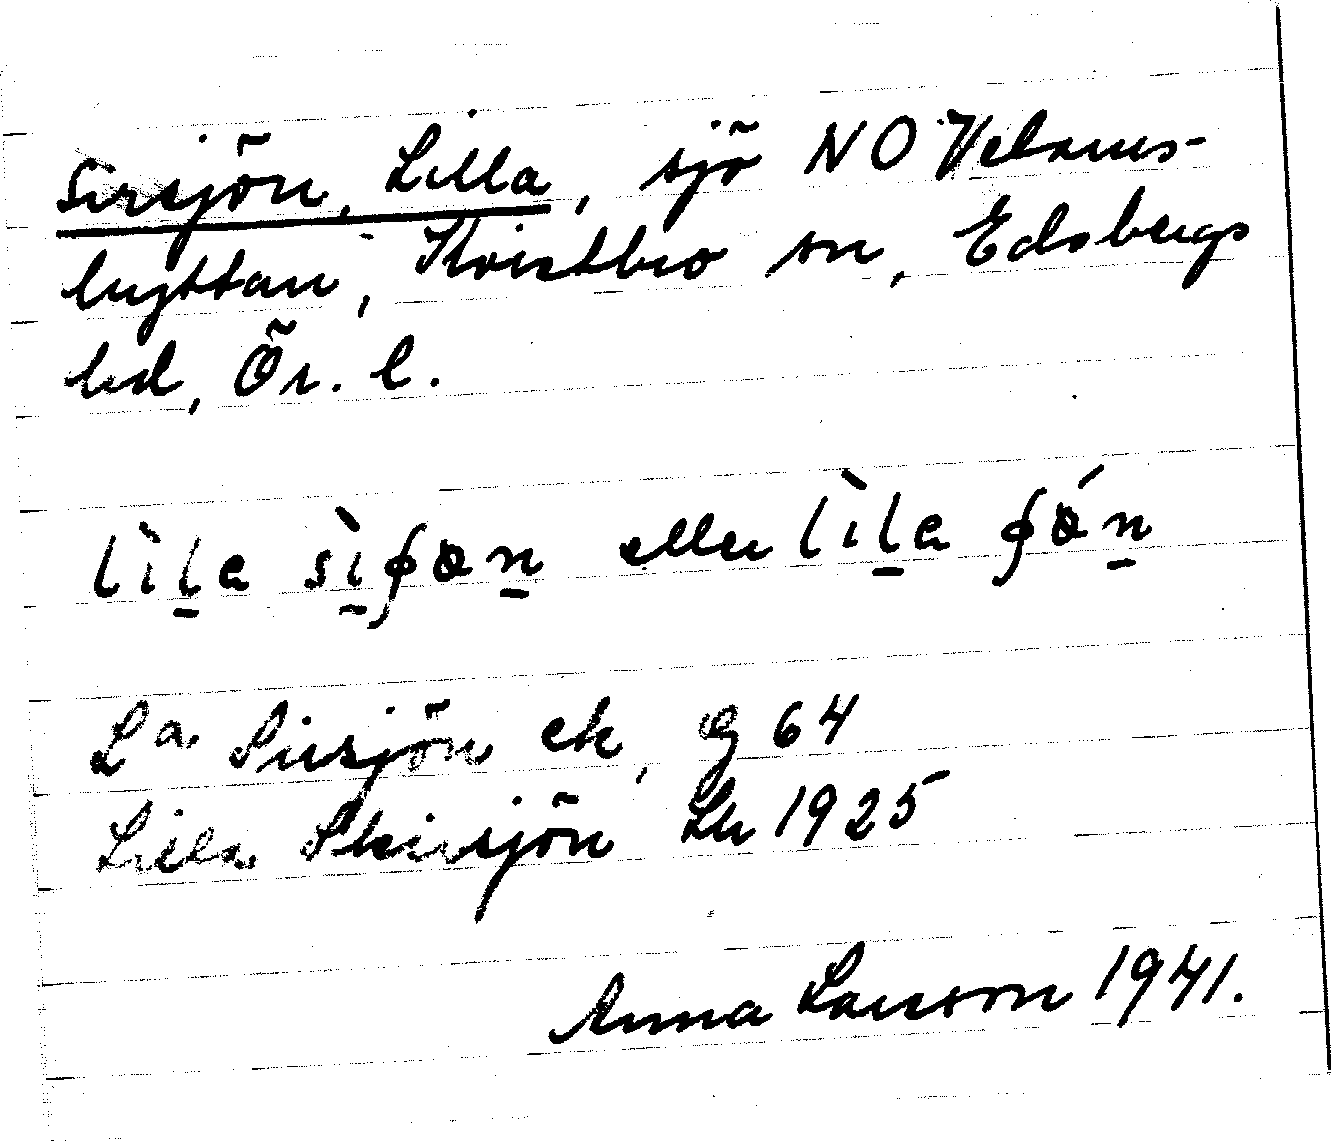 Sirsjön, Lilla, sjö NO Velams-
hyttan, Kvistbro sn, Edsbergs
hd, Ör. l.
Lila siʃön eller Lila ʃön
La. Sirsjön ek, G 64
Lilla Skirsjön Lk 1925
Anna Larsson 1941.